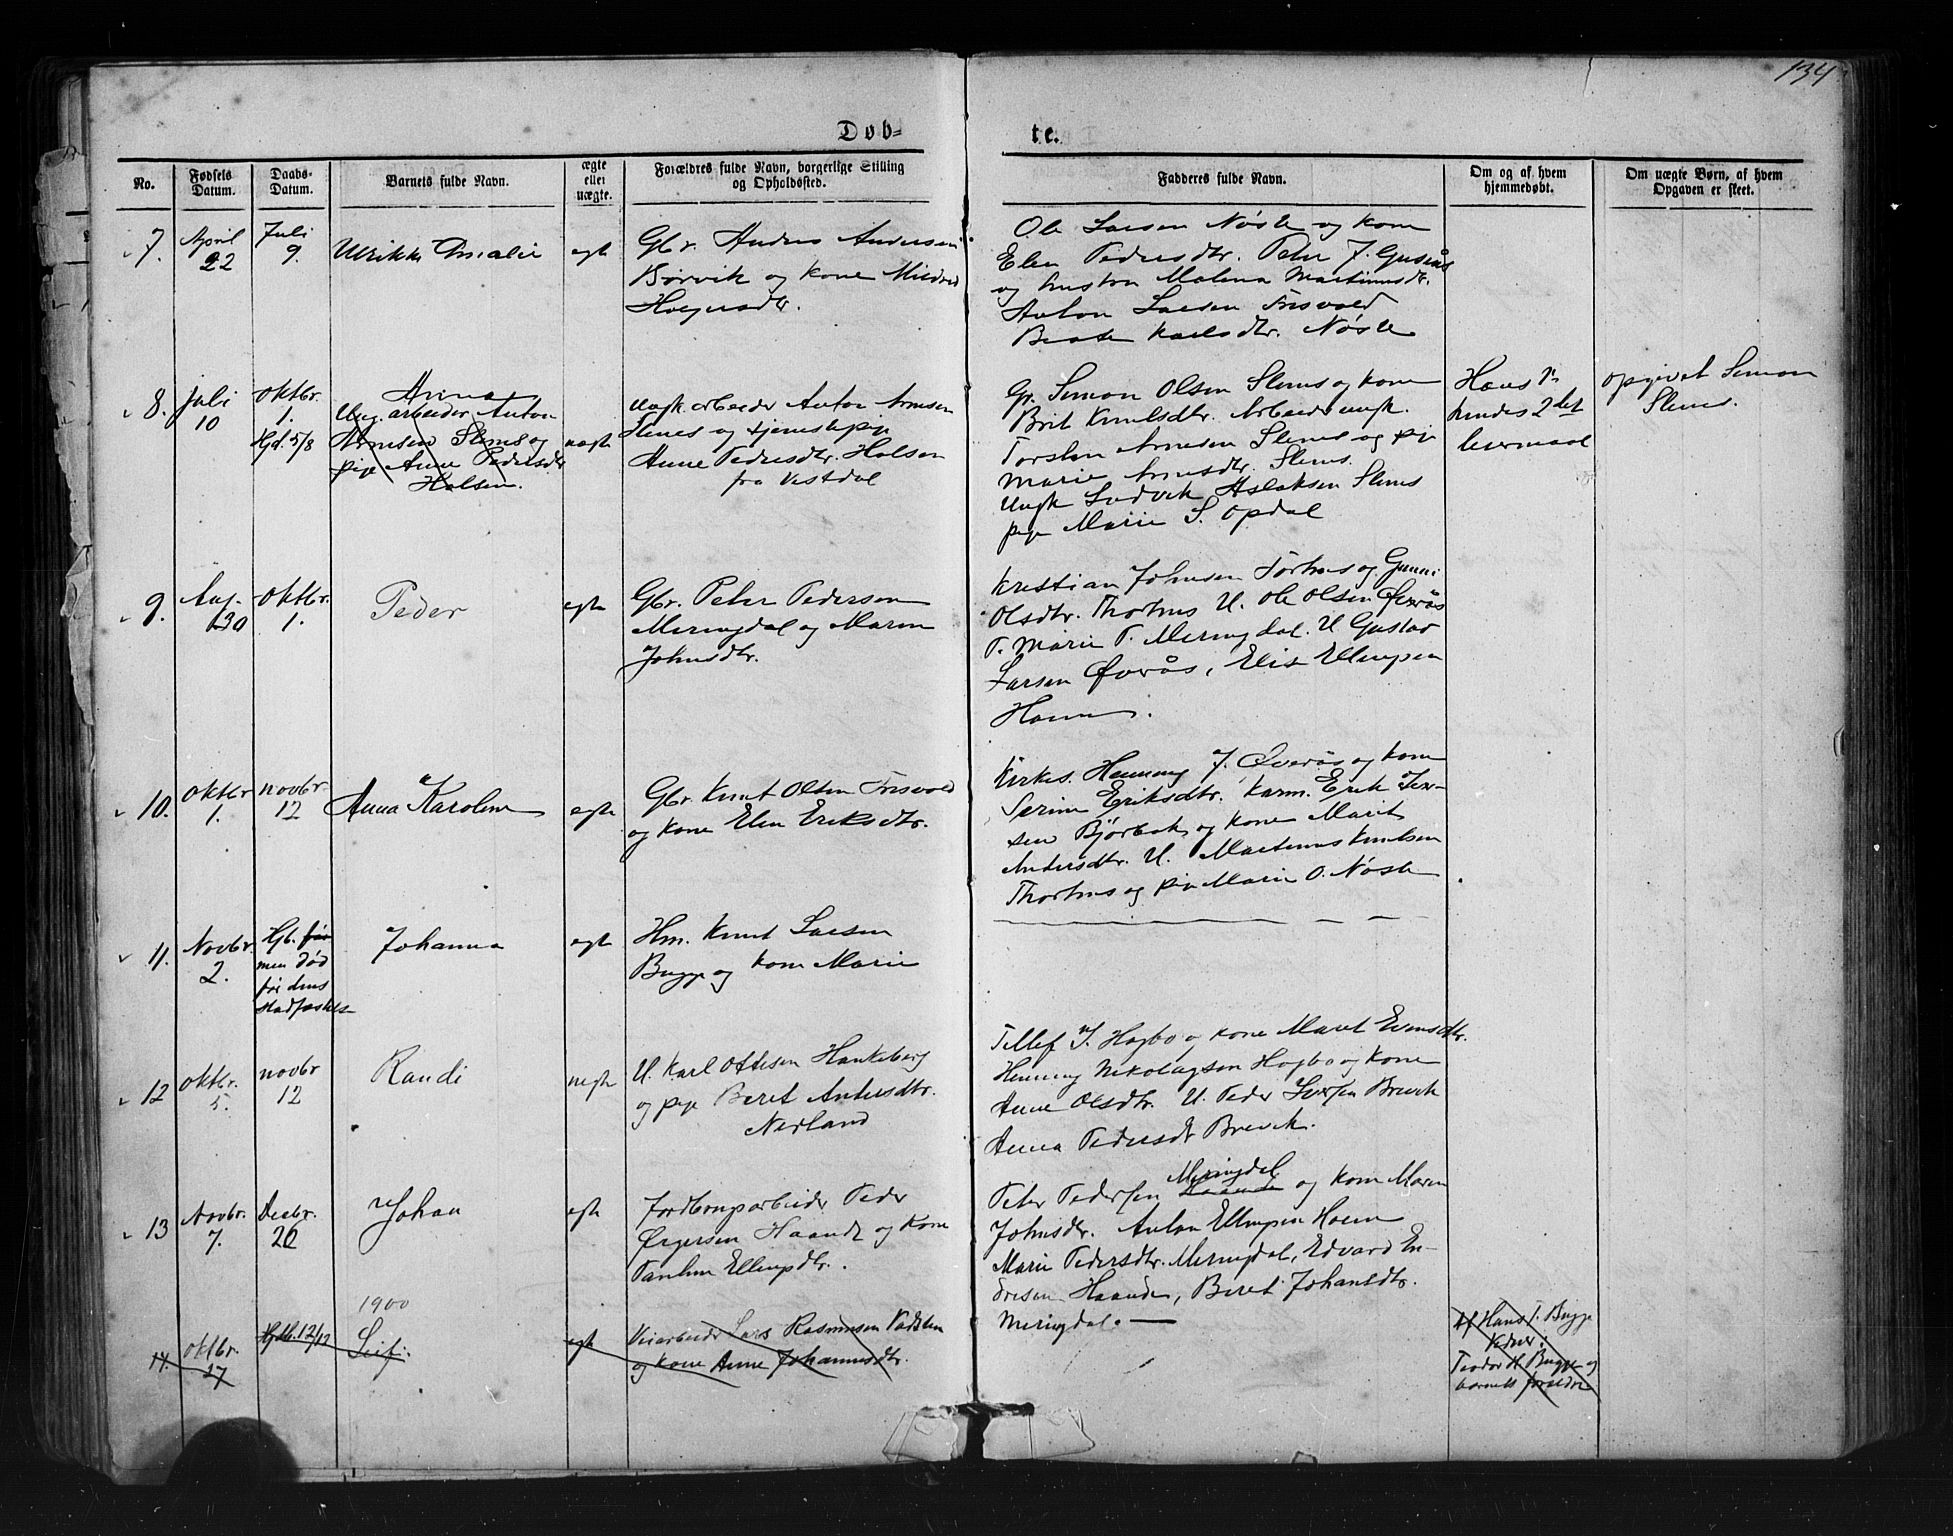 134
Døb-
te.
No.
Fødsels Datum.
Daabs-Datum.
Barnets fulde Navn.
ægte eller uægte.
Forældres fulde Navn, borgerlige Stilling og Opholdssted.
Fadderes fulde Navn.
Om og af hvem hjemmedøbt.
Om uægte Børn, af hvem Opgaven er skeet.
7.
April
22
Juli
9.
Ulrikke Amalie
egte
Gbr. Anders Andersen
Børvik og kone Mildrid
Ole Larsen Nøste og kone
Elen Pedersdtr. Peter J. Gusiås
og hustru Malena Martinusdtr.
Anton Larsen Frisvold
Beate Karlsdtr. Nøste
8.
Juli
10
Oktbr.
1.
Hjd. 5/8
Anna
Ung. arbeider Anton
Arnesen Slems og
pige Anne Pedersdtr
Holsen.
uegte
Ungk. arbeider Anton Arnesen
Slems og tjenestepige
Anne Pedersdtr. Holsen
fra Vestdal
Gr. Simon Olsen Slems og kone
Brit Knutsdtr. Arbeider ungk.
Torsten Arnesen Slems og pige
Marie Arnesdtr. Slems.
Ungk Ludvik Aslaksen Slems
pige Marie S. Opdal
Hans 1ste
hendes 2det
leiermaal
opgivet Simon
Slems.
9.
Aug.
30
Oktbr.
1.
Peder
egte
Gbr. Peter Pedersen
Meringdal og Maren
Johnsdtr.
Kristian Johnsen Torhus og Gunni
Olsdtr. Thorhus U. Ole Olsen Øverås
P. Marie P. Meringdal. U Gustav
Larsen Øverås, Elis Ellingsen
10.
Oktbr
1.
novbr.
12
Anna Karoline
egte
Gbr. Knut Olsen Frisvold
og kone Elen Eriksdtr.
Kirkes. Henning J. Øverås og kone
Serine Eriksdtr. Karm. Erik Iver-
sen Bjørbak og kone Marit
Andersdtr. U. Martinus Knutsen
Thorhus og pige Marie O. Nøste
11.
Novbr
2.
Hjb. før
men død
før dens
stadfæstelse
Johanna
egte
Hm. Knut Larsen
Bugge og kone Marie
12
Oktbr.
5.
novbr
12
Randi
uegte
U. Karl Ottesen Haukeberg
og pige Beret Andersdtr.
Nerland
Tellef J. Hagbø og kone Maret Evensdtr.
Henning Nikolaysen Hagbø og kone
Anne Olsdtr. U. Peder Iversen Brevik
Anna Pedersdt Brevik.
13
Novbr.
7.
Decbr.
26
Johan
egte
Jordbrugsarbeider Peder
Ørgersen Haande og kone
Pauline Ellingsdtr.
Meringdal
Peter Pedersen Haande og kone Maren
Johnsdtr. Anton Ellingsen Hoem
Marie Pedersdtr. Meringdal, Edvard En-
dresen Haande, Beret Johansdtr.
Meringdal.
1900
14.
Oktbr.
27
Hjdb. 12/12
Leif.
egte
Veiarbeider Lars Rasmussen Vadsten
og kone Anne Johannesdtr.
Af Hans T. Bugge
Vidner:
Teodor H. Bugge og
barnets forældre